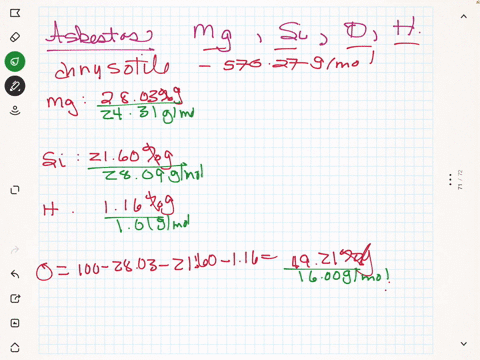 Asbestos, Mg, Si, O, H.
chrysotile - 576.27 g/mol
Mg: 28.03%g
24.31 g/mol
Si: 21.60%g
28.09 g/mol
H. 1.16%g
1.01 g/mol
O = 100-28.03-21.60-1.16= 49.21%g
16.00 g/mol